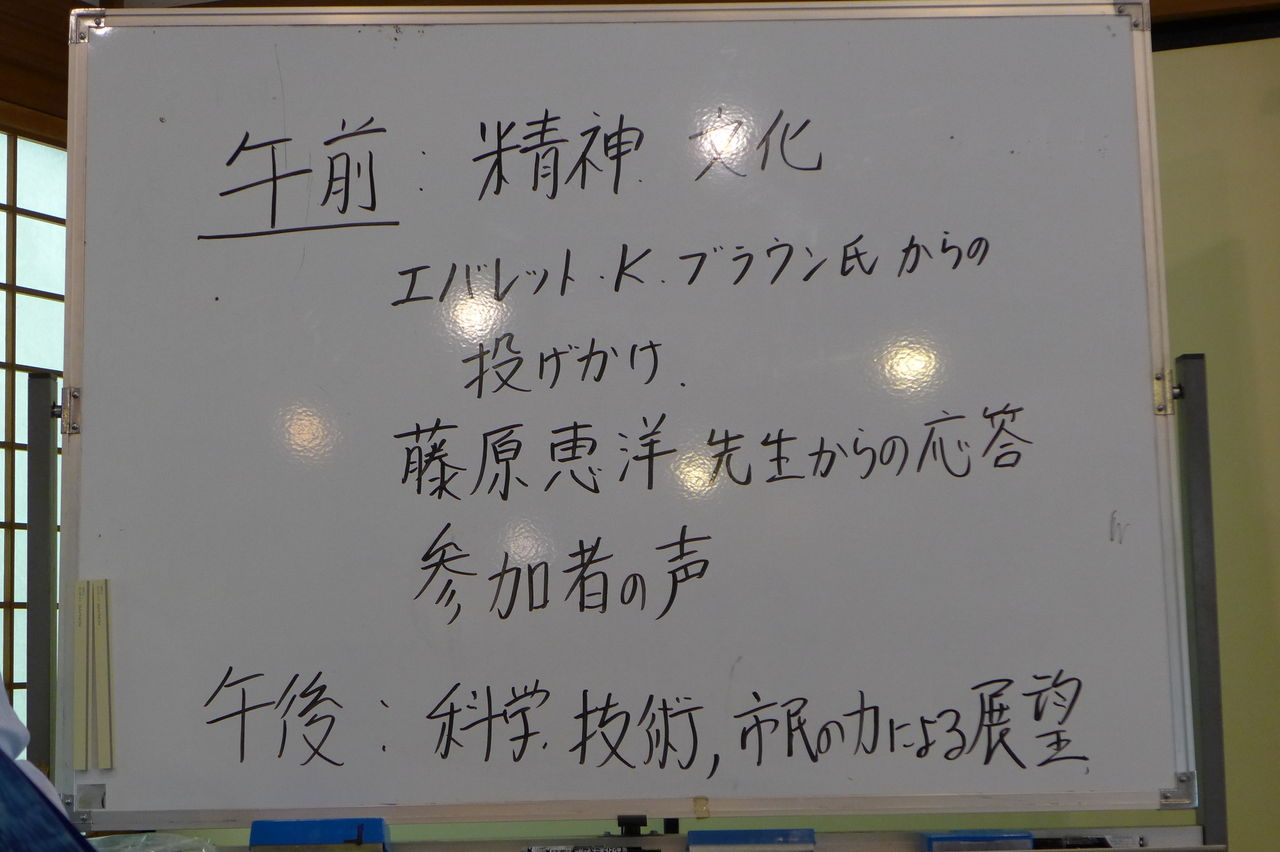 午前：精神 文化
エバレット・K・ブラウン氏からの
投げかけ.
藤原恵洋 先生からの応答
参加者の声
午後：科学技術, 市民の力による展望